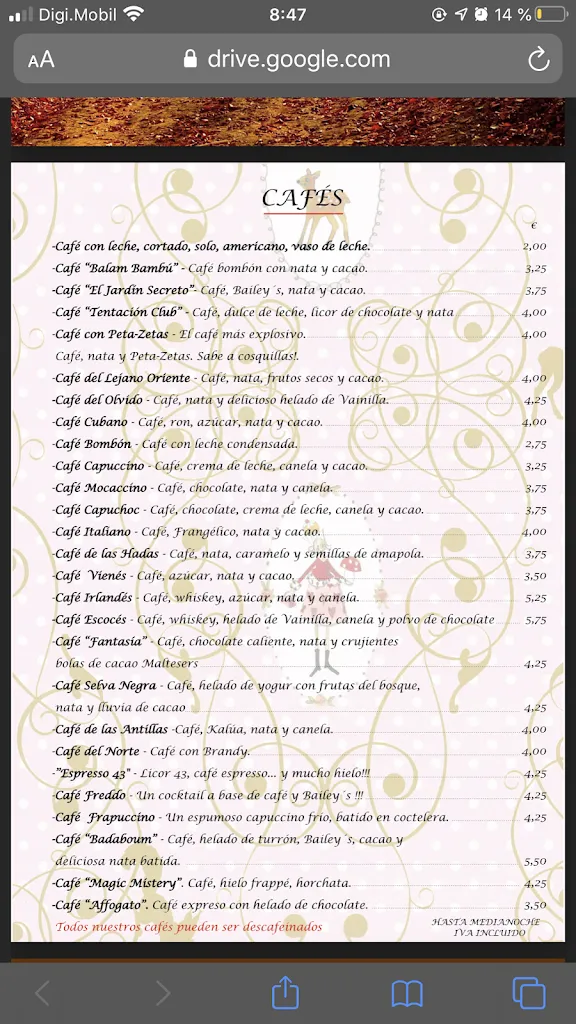 Digi.Mobil 8:47 14 %
AA drive.google.com
CAFÉS
€
-Café con leche, cortado, solo, americano, vaso de leche. 2,00
-Café "Balam Bambú" - Café bombón con nata y cacao. 3,25
-Café "El Jardín Secreto"- Café, Bailey´s, nata y cacao. 3,75
-Café "Tentación Club" - Café, dulce de leche, licor de chocolate y nata 4,00
-Café con Peta-Zetas - El café más explosivo. 4,00
Café, nata y Peta-Zetas. Sabe a cosquillas!.
-Café del Lejano Oriente - Café, nata, frutos secos y cacao. 4,00
-Café del Olvido - Café, nata y delicioso helado de Vainilla. 4,25
-Café Cubano - Café, ron, azúcar, nata y cacao. 4,00
-Café Bombón - Café con leche condensada. 2,75
-Café Capuccino - Café, crema de leche, canela y cacao. 3,25
-Café Mocaccino - Café, chocolate, nata y canela. 3,75
-Café Capuchoc - Café, chocolate, crema de leche, canela y cacao. 3,75
-Café Italiano - Café, Frangélico, nata y cacao. 4,00
-Café de las Hadas - Café, nata, caramelo y semillas de amapola. 3,75
-Café Vienés - Café, azúcar, nata y cacao. 3,50
-Café Irlandés - Café, whiskey, azúcar, nata y canela. 5,25
-Café Escocés - Café, whiskey, helado de Vainilla, canela y polvo de chocolate 5,75
-Café "Fantasía" - Café, chocolate caliente, nata y crujientes
bolas de cacao Maltesers 4,25
-Café Selva Negra - Café, helado de yogur con frutas del bosque,
nata y lluvia de cacao 4,25
-Café de las Antillas -Café, Kalúa, nata y canela. 4,00
-Café del Norte - Café con Brandy. 4,00
-"Espresso 43" - Licor 43, café espresso... y mucho hielo!!! 4,25
-Café Freddo - Un cocktail a base de café y Bailey´s !!! 4,25
-Café Frapuccino - Un espumoso capuccino frío, batido en coctelera. 4,25
-Café "Badaboum" - Café, helado de turrón, Bailey´s, cacao y
deliciosa nata batida. 5,50
-Café "Magic Mistery". Café, hielo frappé, horchata. 4,25
-Café "Affogato". Café expreso con helado de chocolate. 3,50
Todos nuestros cafés pueden ser descafeinados
HASTA MEDIANOCHE
IVA INCLUIDO